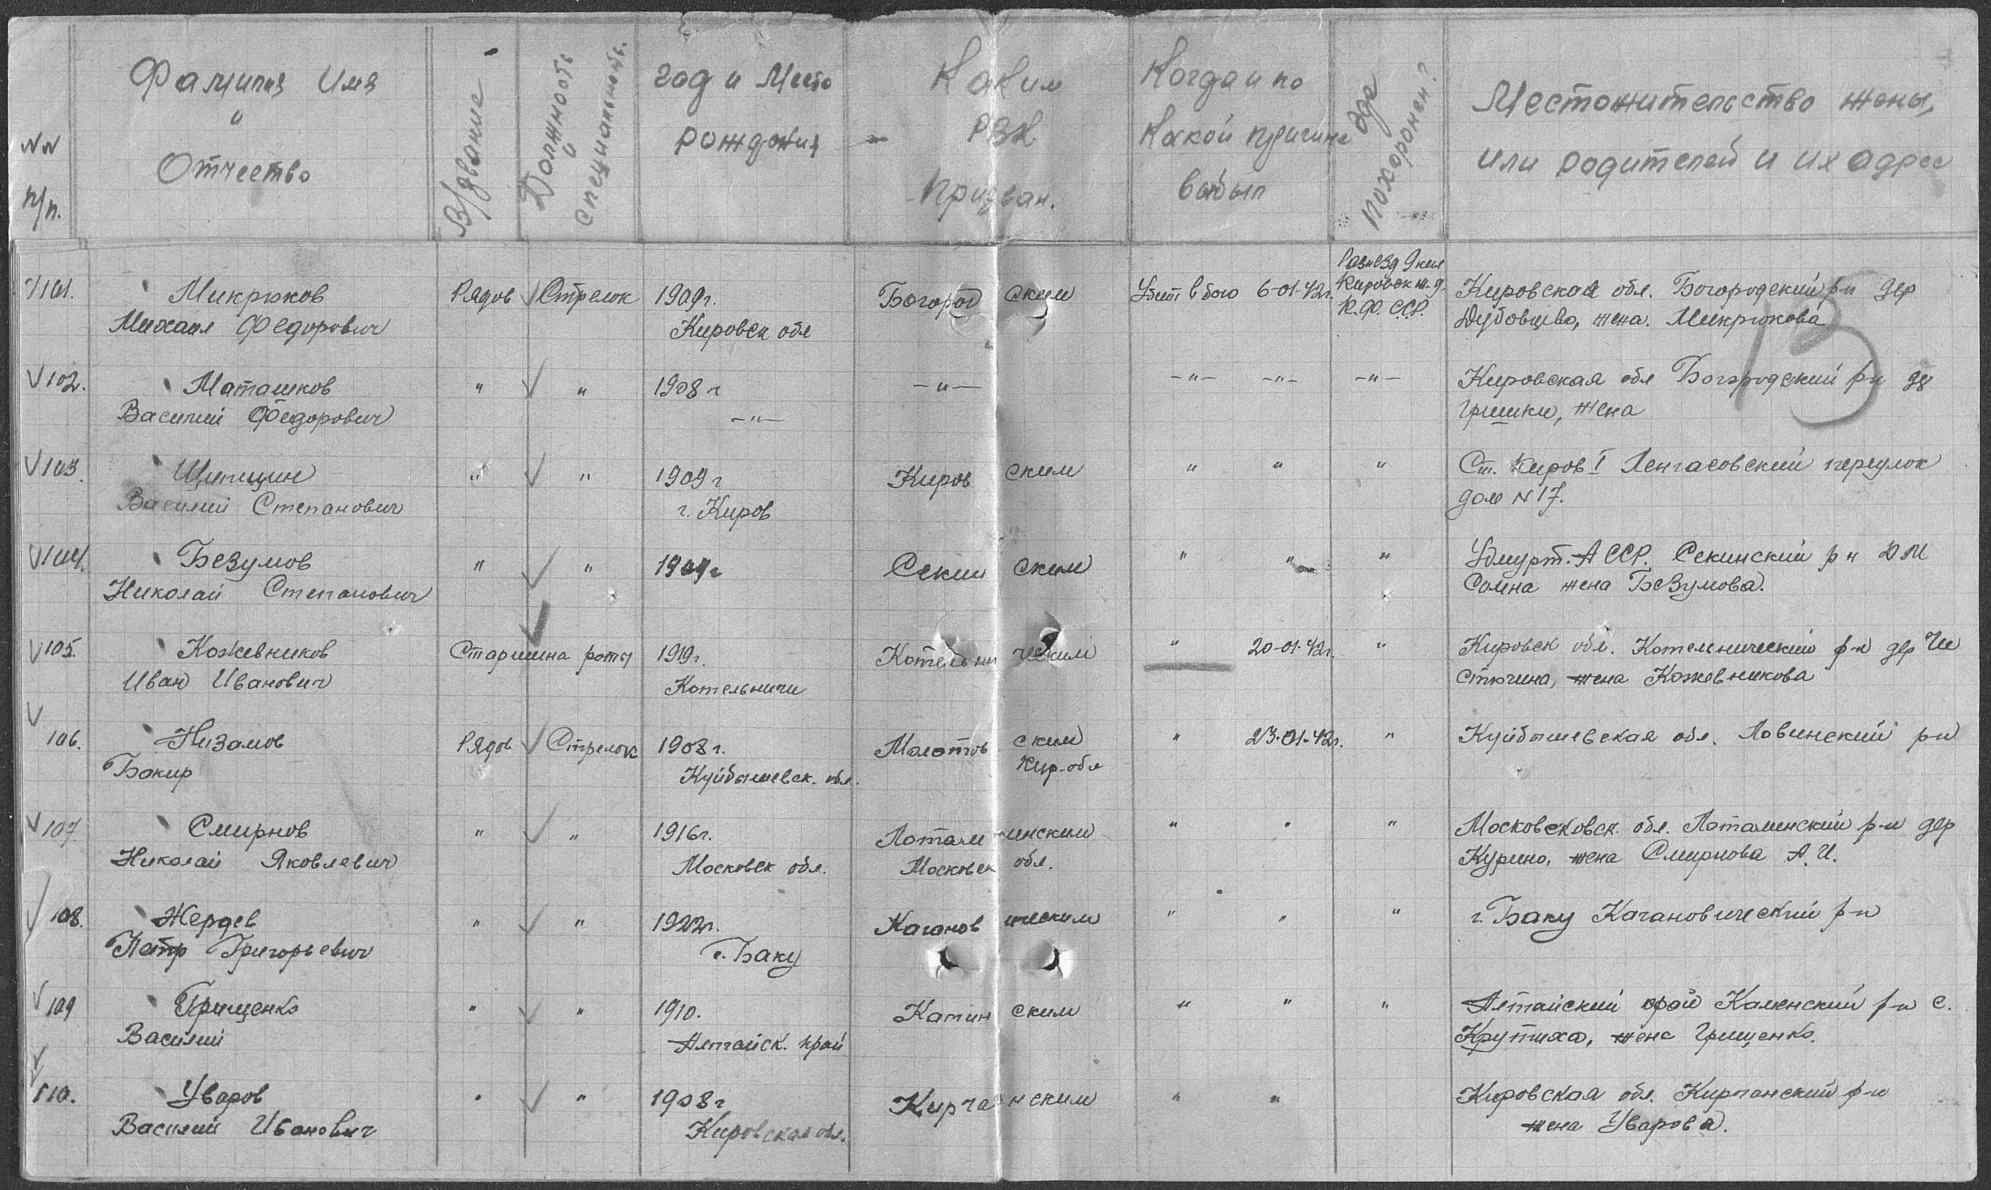 NN п/п.
Фамилия Имя и Отчество
В/звание
Должность и специальность.
год и Место рождения
Каким РВК призван.
Когда и по какой причине выбыл
где похоронен?
Местожительство жены, или родителей и их адрес
101. Микрюков Рядов Стрелок 1909г. Богород ским Убит в бою 6-01-42г. Разъезд 9 км Кировск ж.д. К.Ф.ССР. Кировская обл. Богородский р-н дер
Михаил Федорович Кировск обл Дубовцево, жена. Микрюкова
13
102. Маташков " " 1908 г -"- -"- -"- -"- Кировская обл Богородский р-н де
Василий Федорович -"- Гришки, жена
103. Щипицин " " 1909 г Киров ским " " " Ст. Киров I Ленгасовский переулок
Василий Степанович г. Киров дом N 17.
104. Безумов " " Секин ским " " " Удмурт. АССР. Секинский р-н
Николай Степанович жена Безумова.
105. Кожевников Старшина роты 1919г. Котельни ческим " 20-01-42г. " Кировск обл. Котельнический р-н дер Чи
Иван Иванович Котельничи стюгина, жена Кожевникова
106. Низамов Рядов Стрелок 1908 г. Молотов ским " 23-01-42г. " Куйбышевская обл. Ловинский р-н
Бакир Куйбышевск. обл. Кир-обл
107. Смирнов " " 1916г. Лотам инским " " " Московсковск. обл. Лоталинский р-н дер
Николай Яковлевич Московск обл. Московск обл. Курино, жена Смирнова А.И.
108. Жердев " " 1922г. Каганов ическим " " " г. Баку Кагановический р-н
Петр Григорьевич г. Баку
109 Грищенко " " 1910. Камин ским " " " Алтайский край Каменский р-н с.
Василий Алтайск. край Крутиха, жена Грищенко.
110. Уваров " " 1908 г Кирча нским " " Кировская обл. Кирчанский р-н
Василий Иванович Кировская обл. жена Уварова.